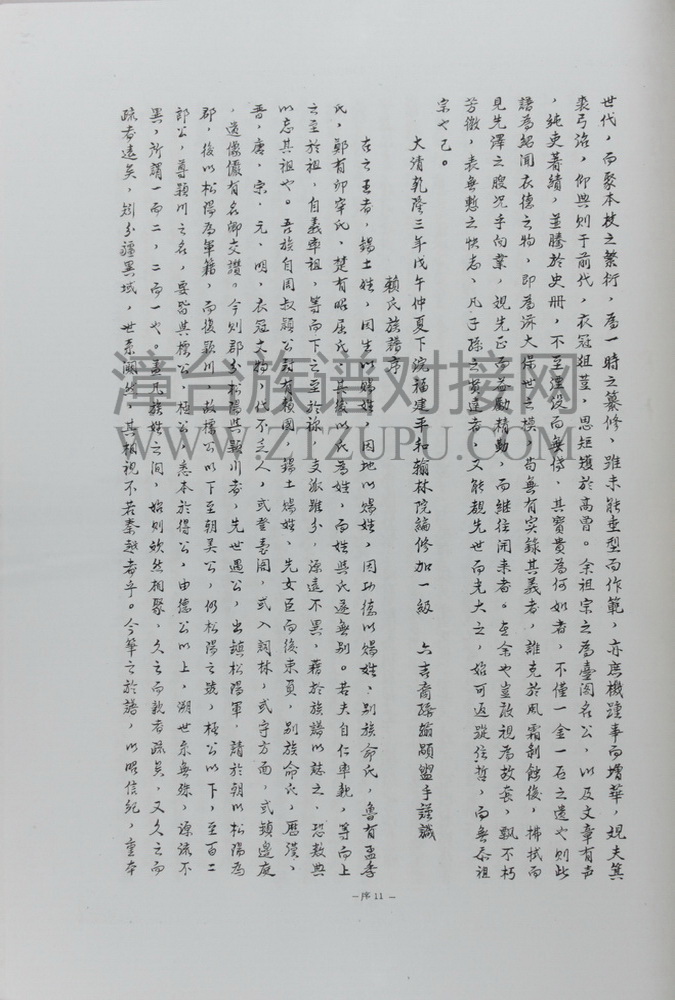 世代，而聚本枝之繁衍，為一時之纂修，雖未能垂型而作範，亦庶機踵事而增華，覌夫箕
裘弓冶，仰與則于前代，衣冠俎荳，思矩矱於高曾。余祖宗之為臺閣名公，以及文章有声
，純吏著績，並騰於史册，不至湮没而無傳，其寳貴為何如者，不僅一金一石之遺也則此
譜為紹聞衣德之物，即為渊大保世之模，苟無有实錄其義者，誰克於風霜剝蝕後，拂拭而
見先澤之賸况乎向業，覌先正而益勵精勤，而継往開來者。查余也豈敢視為故套，飘不朽
芳徽，表無慙之快志，凡子孫之賢達者，又能覩先世而光大之，始可返蹤往哲，而無忝祖
宗也已。
大清乾隆三年戊午仲夏下浣福建平和翰林院編修加一級　六吉裔孫翰顒盥手謹識
賴氏族譜序
在之王者，錫土姓，因生以賜姓，因地以賜姓，因功德以賜姓，別族命氏，魯有孟季
氏，鄭有卯宰氏，楚有昭屈氏，其後以氏為姓，而姓與氏遂無别。若夫自仁率親，等而上
之至於祖，自義率祖，等而下之至於祢，支派雖分，源遠不異，藉於族譜以誌之，恐数典
以忘其祖也。吾族自周叔頴公封有賴國，錫土賜姓、先女臣而後東員，别族命氏，歷漢、
晋，唐、宗、元、明，衣冠文物，代不乏人，或登臺閣，或入詞林，或守方面，或鎮邊庭
，遺像儼有名卿交讚。今則郡分松陽與穎川者，先世遇公，出鎮松陽軍，請於朝以松陽為
郡，後以松陽為軍籍，而復穎川，故標公以下至朝美公，仍松陽之號，極公以下，至百二
郎公，尊穎川之名，要皆其標公、極公，悉本於得公，由德公以上，溯世系無殊，源流不
異，所謂一而二，二而一也。盖凡族姓之间，始则欸然相聚，久之而親者疏矣，又久之而
疏者遠矣，矧分疆異域，世系闕然，其相視不若秦越者乎。今筆之於譜，以昭信紀，重本
—序 11 —
漳台族谱对接网
WWW.ZTZUPU.COM